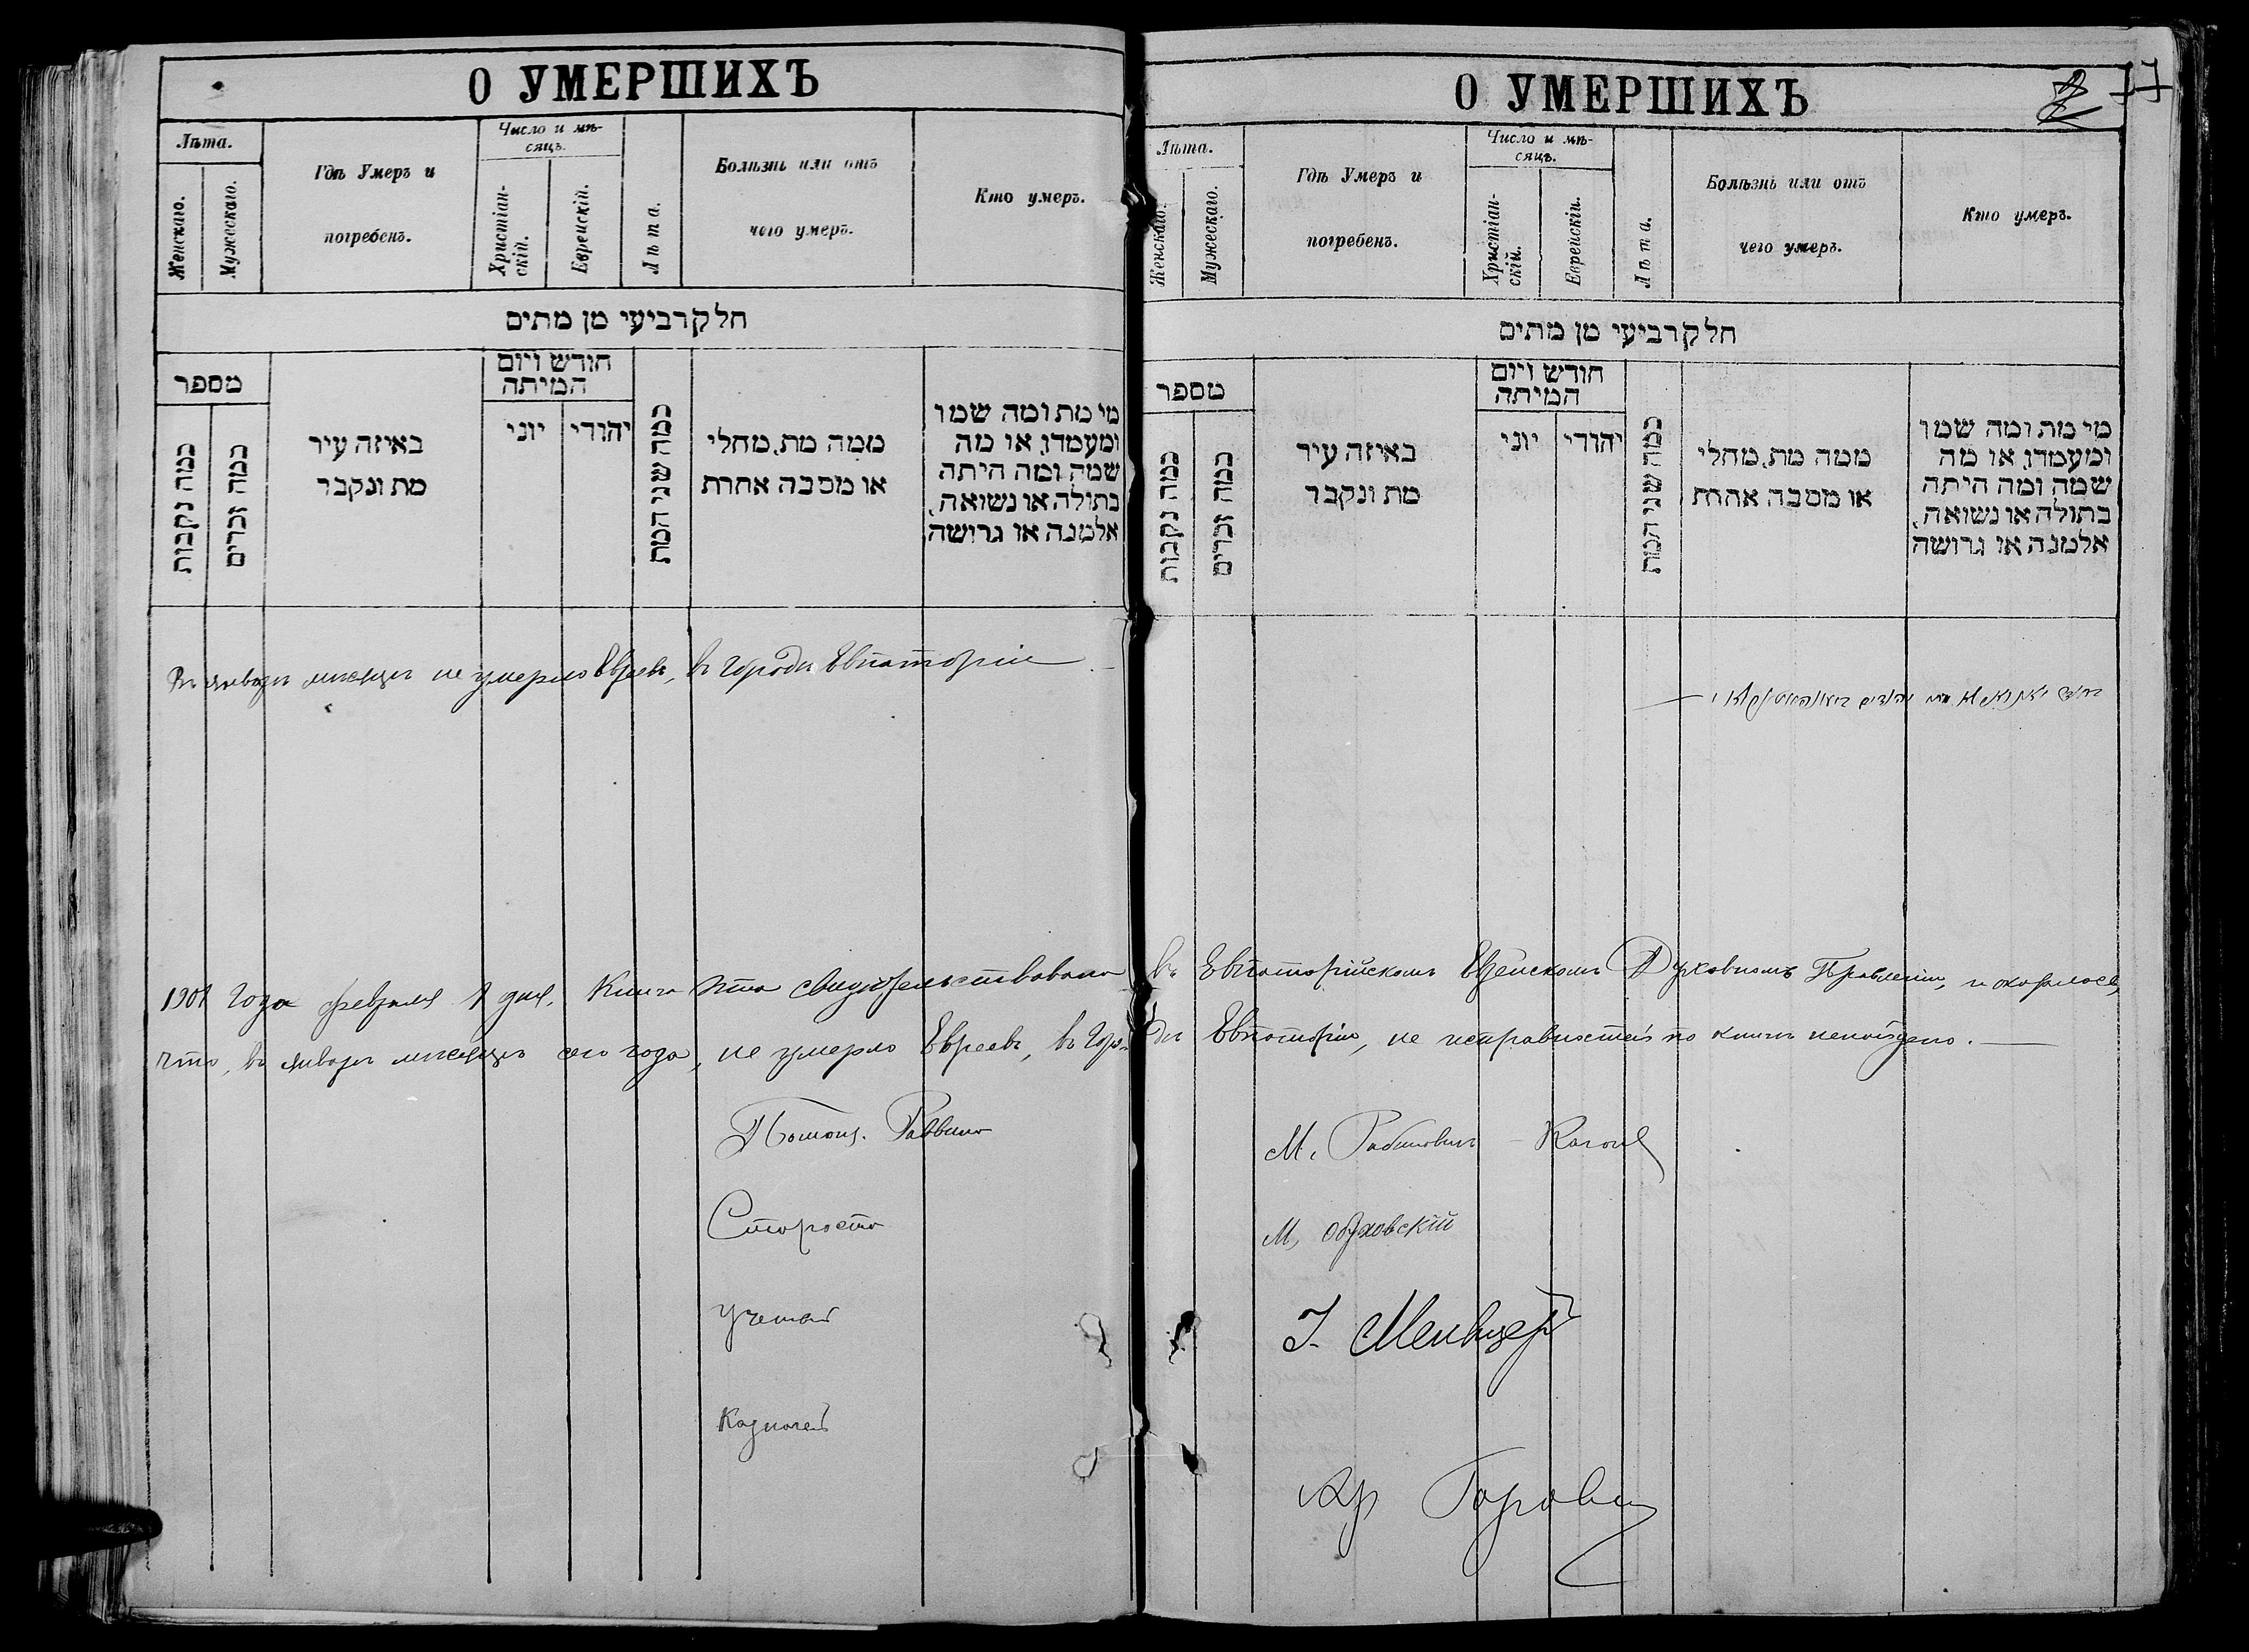 О УМЕРШИХЪ
Лѣта.
Женскаго.
Мужескаго.
Гдѣ Умеръ и
погребенъ.
Число и мѣ-
сяцъ.
Христіан-
скій.
Еврейскій.
Лѣта.
Болѣзнь или отъ
чего умеръ.
Кто умеръ.
חלק רביעי מן מתים
מספר
כמה נקבות
כמה זכרים
באיזה עיר
מת ונקבר
חודש ויום
המיתה
יוני
יהודי
כמה שני המת
ממה מת, מחלי
או מסבה אחרת
מי מת ומה שמו
ומעמדו, או מה
שמה ומה היתה
בתולה או נשואה,
אלמנה או גרושה
Въ январѣ мѣсяцѣ не умерло Евреевъ, въ Городѣ Евпаторіи
1901 года февраля 1 дня. Книга эта свидѣтельствована
что, въ январѣ мѣсяцѣ сего года, не умерло Евреевъ, въ Горо-
Помощ. Раввина
Староста
Ученый
Казначей
О УМЕРШИХЪ
Лѣта.
Женскаго.
Мужескаго.
Гдѣ Умеръ и
погребенъ.
Число и мѣ-
сяцъ.
Христіан-
скій.
Еврейскій.
Лѣта.
Болѣзнь или отъ
чего умеръ.
Кто умеръ.
חלק רביעי מן מתים
מספר
כמה נקבות
כמה זכרים
באיזה עיר
מת ונקבר
חודש ויום
המיתה
יוני
יהודי
כמה שני המת
ממה מת, מחלי
או מסבה אחרת
מי מת ומה שמו
ומעמדו, או מה
שמה ומה היתה
בתולה או נשואה,
אלמנה או גרושה
въ Евпаторійскомъ Еврейскомъ Духовномъ Правленіи, и оказалось,
дѣ Евпаторіи, не исправностей по книгѣ ненайдено.
М. Рабиновичъ - Каганъ
М. Обуховскій
І. Менцеръ
Ар Горовиц